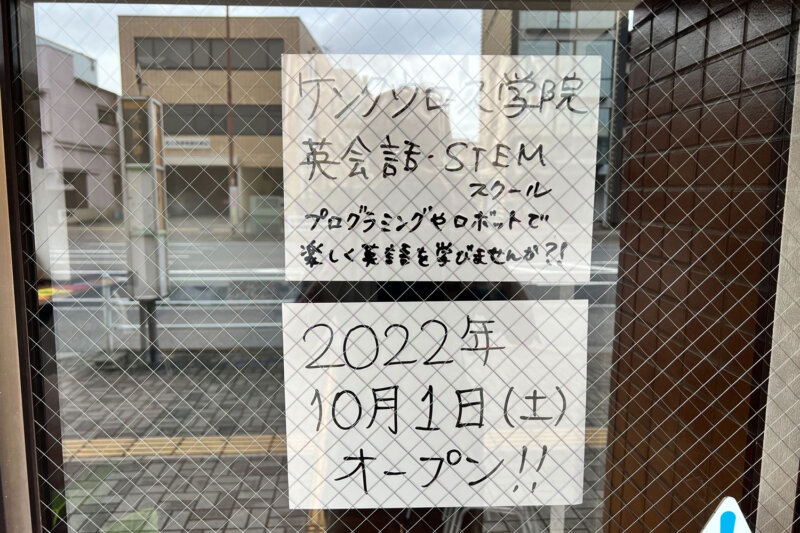 ケンクロス学院
英会話・STEM
スクール
プログラミングやロボットで
楽しく英語を学びませんか?!
2022年
10月1日(土)
オープン!!